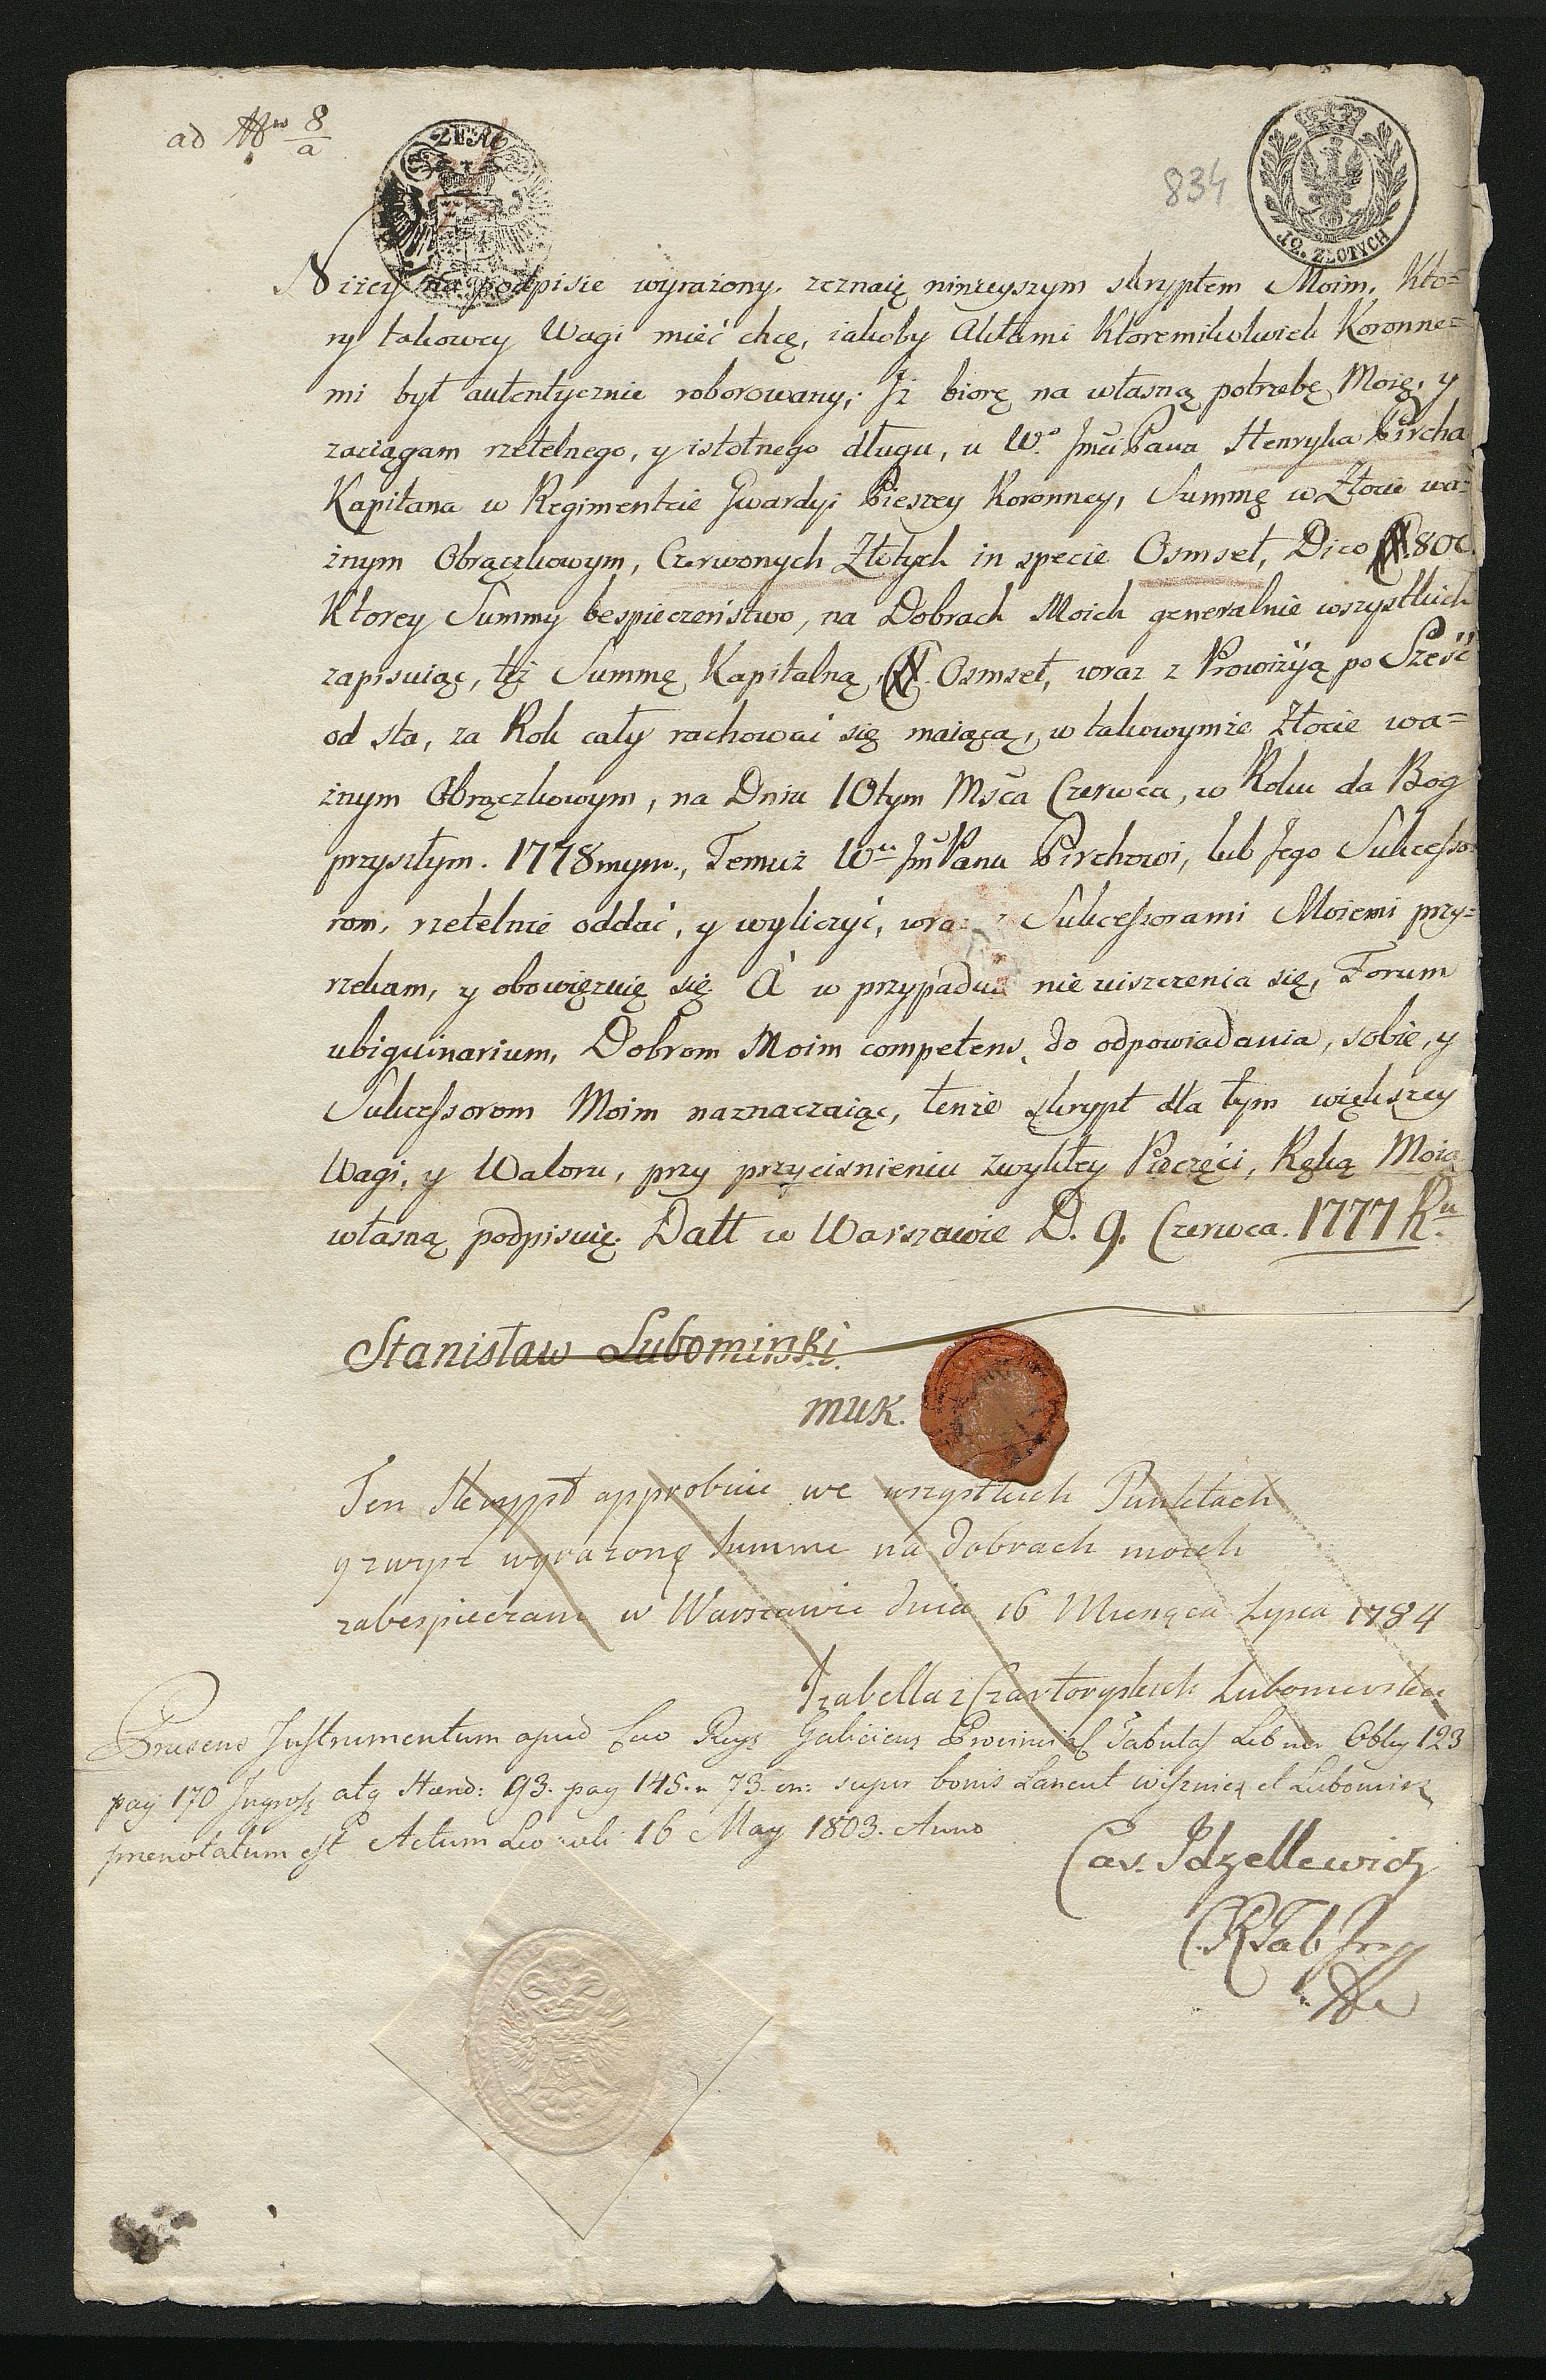 ad Nro 8/a
834
12. ZŁOTYCH
Niżey na podpisie wyrażony, zeznaię ninieyszym skryptem Moim, Kto=
ry takowey Wagi mieć chcę, iakoby Aktami Ktoremikolwiek Koronne=
mi był autentycznie roborowany; Iż biorę na własną potrzebę Moię, y
zaciągam rzetelnego, y istotnego długu, u W.o Jmci Pana Henryka Pircha
Kapitana w Regimentcie Gwardyi Pieszey Koronney, Summę w Złocie wa=
żnym Obrączkowym, Czerwonych Złotych in specie Osmset, Dico # 800.
Ktorey Summy bespieczeństwo, na Dobrach Moich generalnie wszystkich
zapisuiąc, tęż Summę Kapitalną, # Osmset, wraz z Prowizyą po Sześć
od sta, za Rok cały rachować się maiącą, w takowymże Złocie wa=
żnym Obrączkowym, na Dniu 10tym Msca Czerwca, w Roku da Bog
przyszłym. 1778mym., Temuż Wu Jm Panu Pirchowi, lub Jego Sukcesso=
rom, rzetelnie oddać, y wyliczyć, wraz z Sukcessorami Moiemi przy=
rzekam, y obowięzuię się A w przypadku nie uiszczenia się, Forum
ubiquinarium, Dobrom Moim competens, do odpowiadania, sobie, y
Sukcessorom Moim naznaczaiąc, tenże skrypt dla tym większey
Wagi, y Waloru, przy przyciśnieniu zwykłey Pieczęci, Ręką Moią
własną podpisuię. Datt w Warszawie D. 9. Czerwca. 1777 Ru
Stanisław Lubomirski.
muk.
Ten Skrypt approbuie we wszystkich Punktach
y zwysz wyrazonę Summe na dobrach moich
zabespieczam w Warszawie dnia 16 Miesąca Lypca 1784
Izabella z Czartoryskich Lubomirska
Praesens Instrumentum apud Caes Reg Galiciens Provincial Tabulas Lib Oblig 123
pag 170 Ingross atq Haered: 93. pag 145. n 73. on: super bonis Lancut Wisznicz et Lubomirz
prenotatum est Actum Leopoli 16 May 1803. Anno
Cas. Idzellewicz